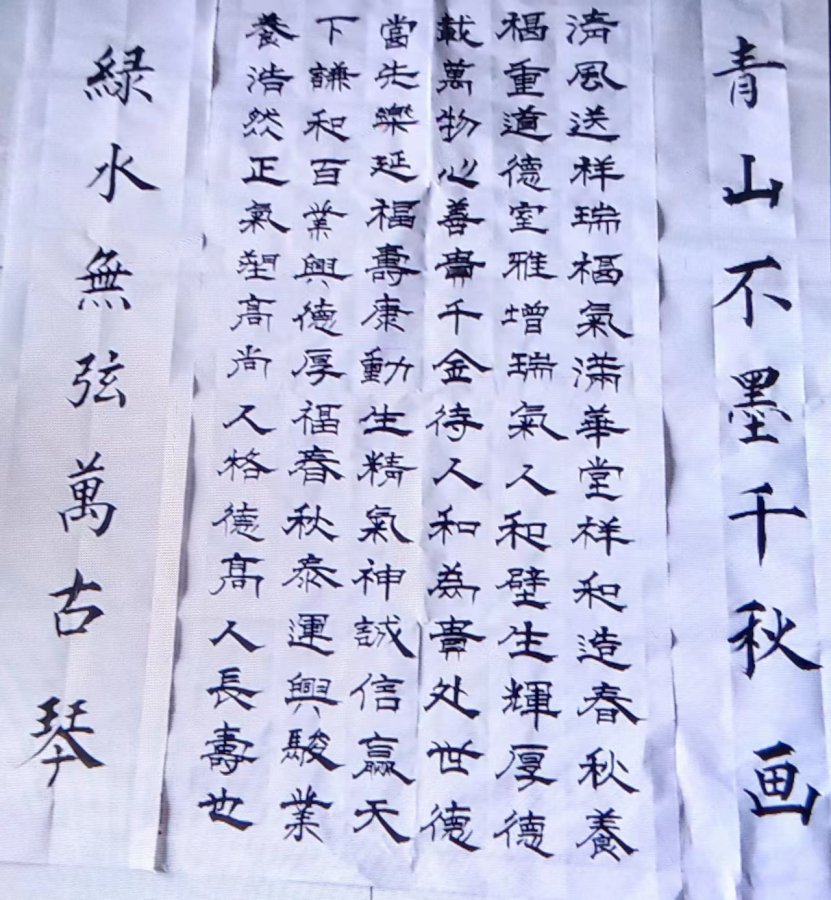 青山不墨千秋画
清風送祥瑞福氣滿華堂祥和造春秋養
福重道德室雅增瑞氣人和壁生輝厚德
載萬物心善貴千金待人和為貴处世德
當先樂延福壽康動生精氣神誠信贏天
下謙和百業興德厚福春秋泰運興駿業
養浩然正氣塑高尚人格德高人長壽也
緑水無弦萬古琴